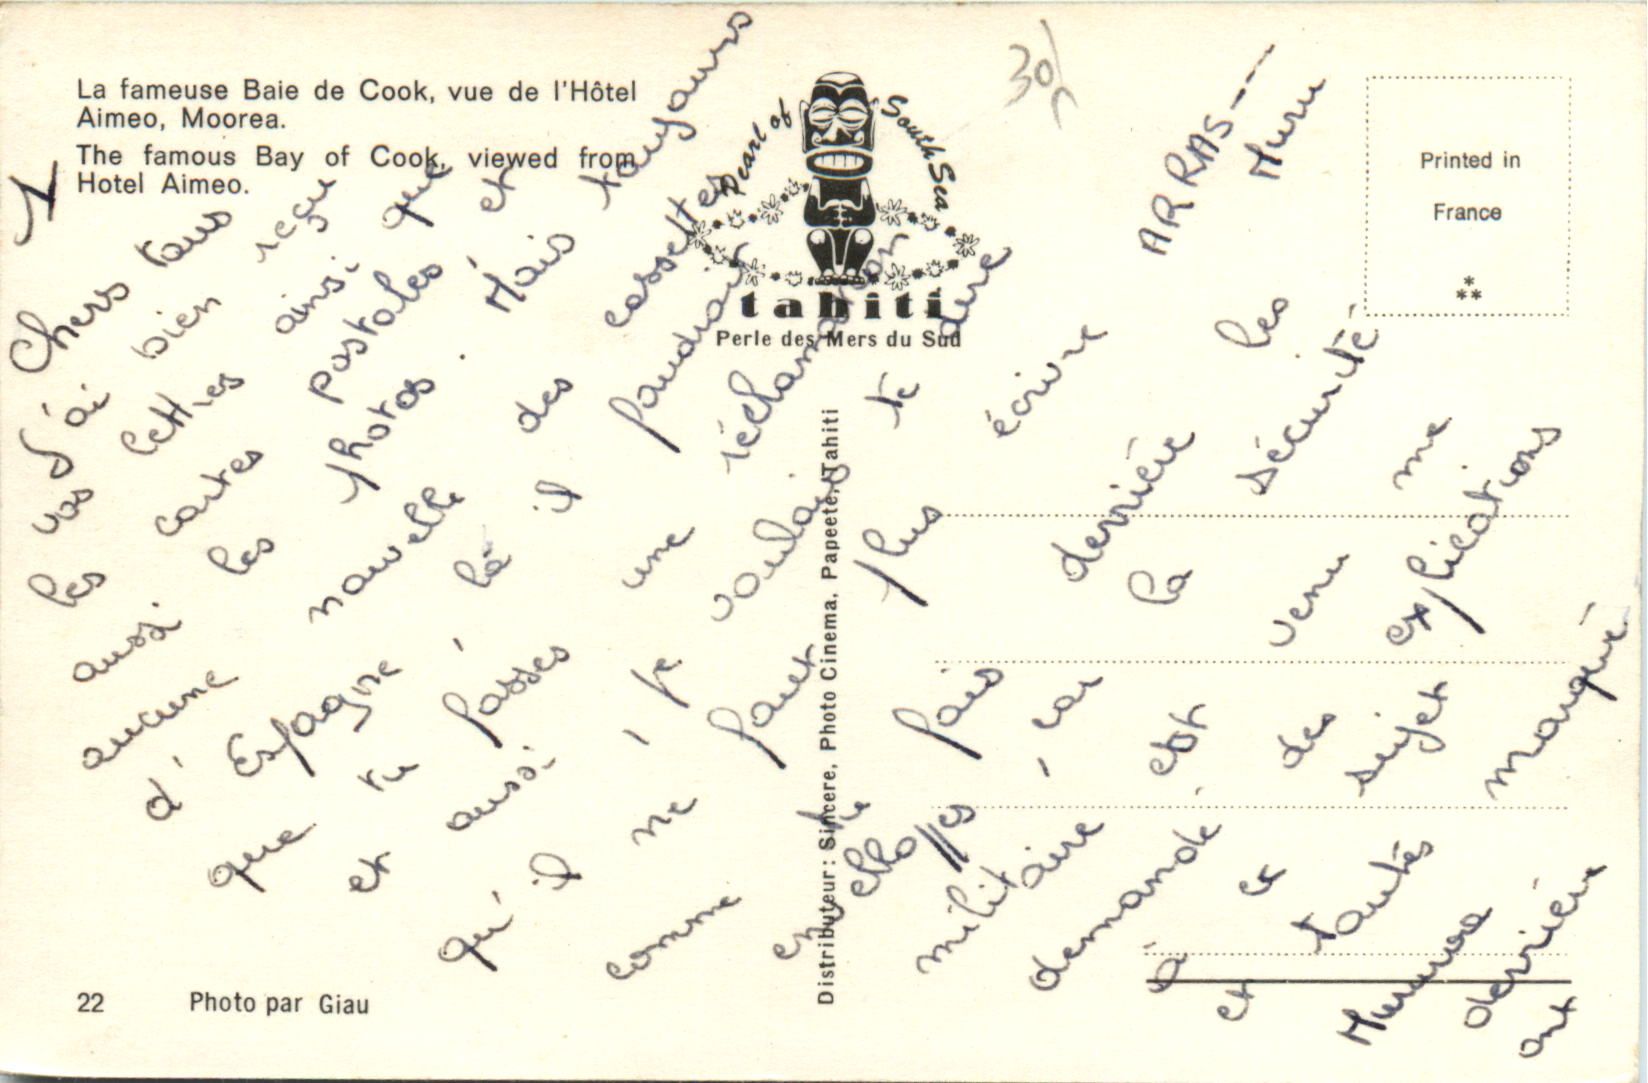 La fameuse Baie de Cook, vue de l'Hôtel
Aimeo, Moorea.
The famous Bay of Cook, viewed from
Hotel Aimeo.
1
Chers tous
J'ai bien reçu
vos lettres ainsi que
les cartes postales et
aussi les photos. Mais toujours
aucune nouvelle des cassettes
d'Espagne, là il faudrait
que tu fasses une réclamation
et aussi, je voulais te dire
qu'il ne faut plus écrire
comme tu fais derrière les
enveloppes, car la sécurité
militaire est venu me
demandé des explications
à ce sujet
et toutes marqué
Mururoa
derrière
ont
ARRAS---
Muru
30
Pearl of South Sea
tahiti
Perle des Mers du Sud
Distributeur : Sincere, Photo Cinema, Papeete, Tahiti
Printed in
France
*
**
22 Photo par Giau